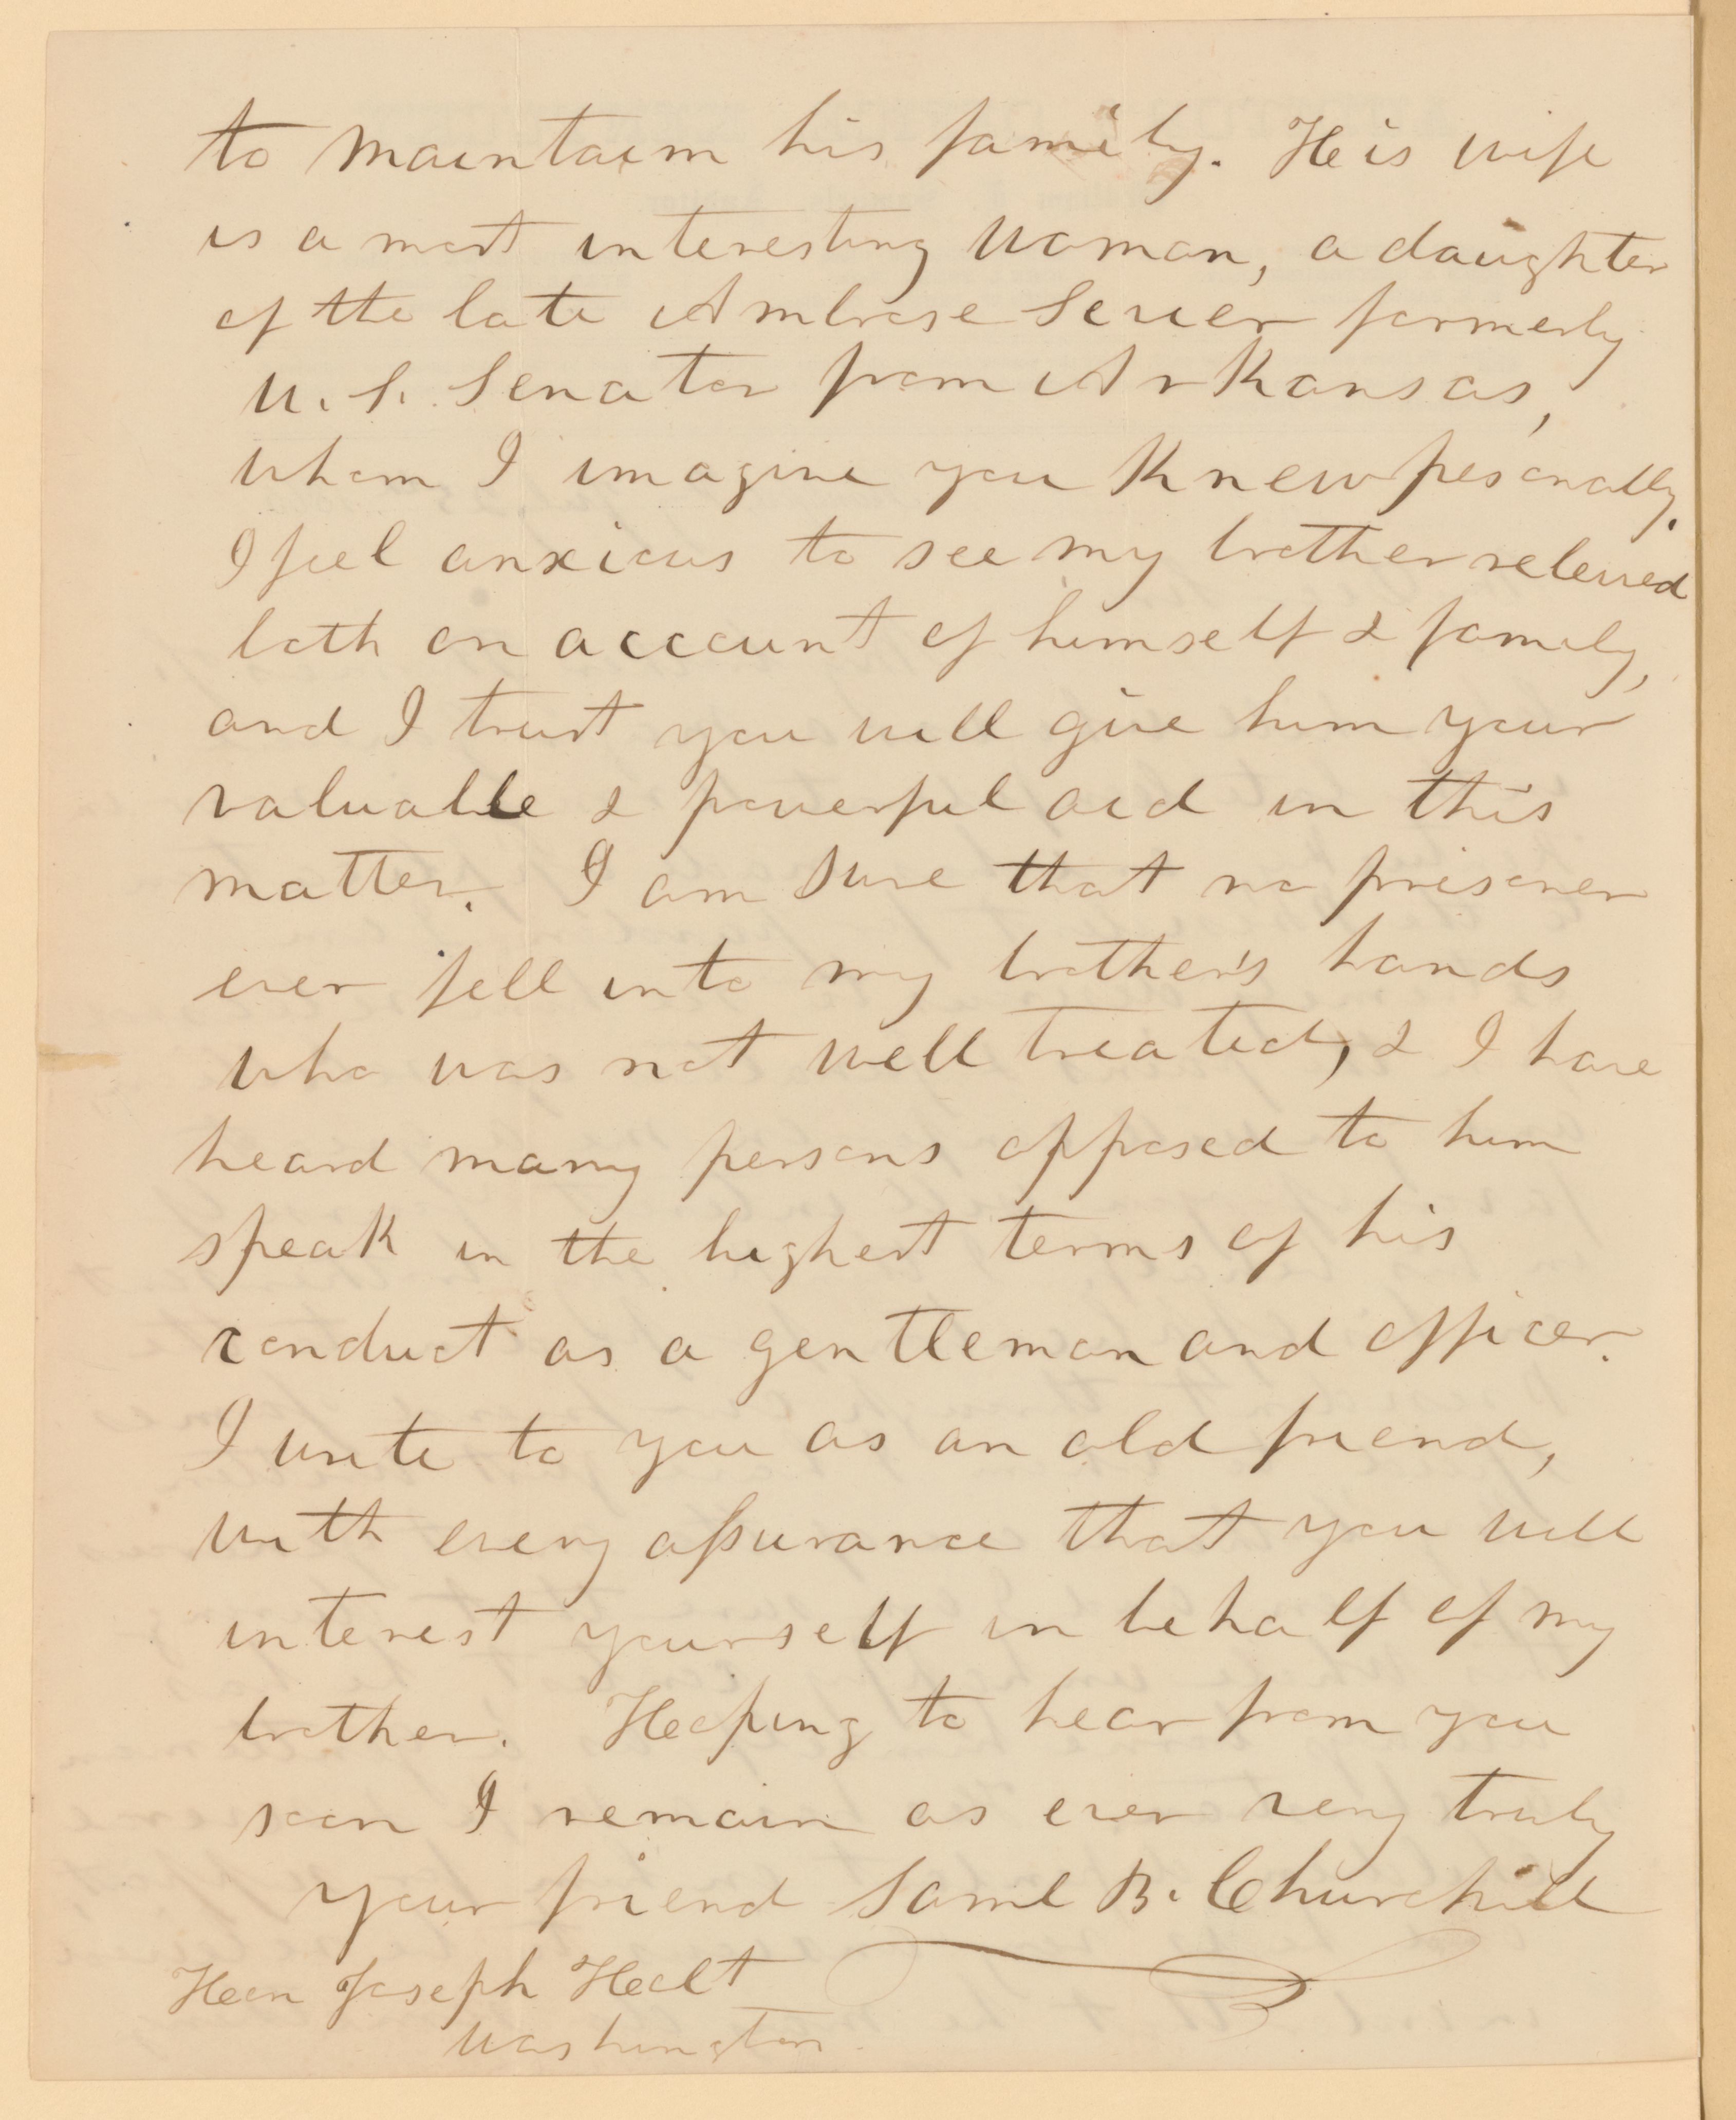 to maintain his family. His wife
is a most interesting woman, a daughter
of the late Ambrose Sevier formerly
U. S. Senator from Arkansas,
whom I imagine you knew pesonally.
I feel anxious to see my brother relieved
both on account of himself & family,
and I trust you will give him your
valuable & powerful aid in this
matter. I am sure that no prisoner
ever fell into my brother's hands
who was not well treated, & I have
heard many persons opposed to him
speak in the highest terms of his
conduct as a gentleman and officer.
I write to you as an old friend,
with every assurance that you will
interest yourself in behalf of my
brother. Hoping to hear from you
soon I remain as ever very truly
your friend Saml B. Churchill
Hon Joseph Holt
Washington